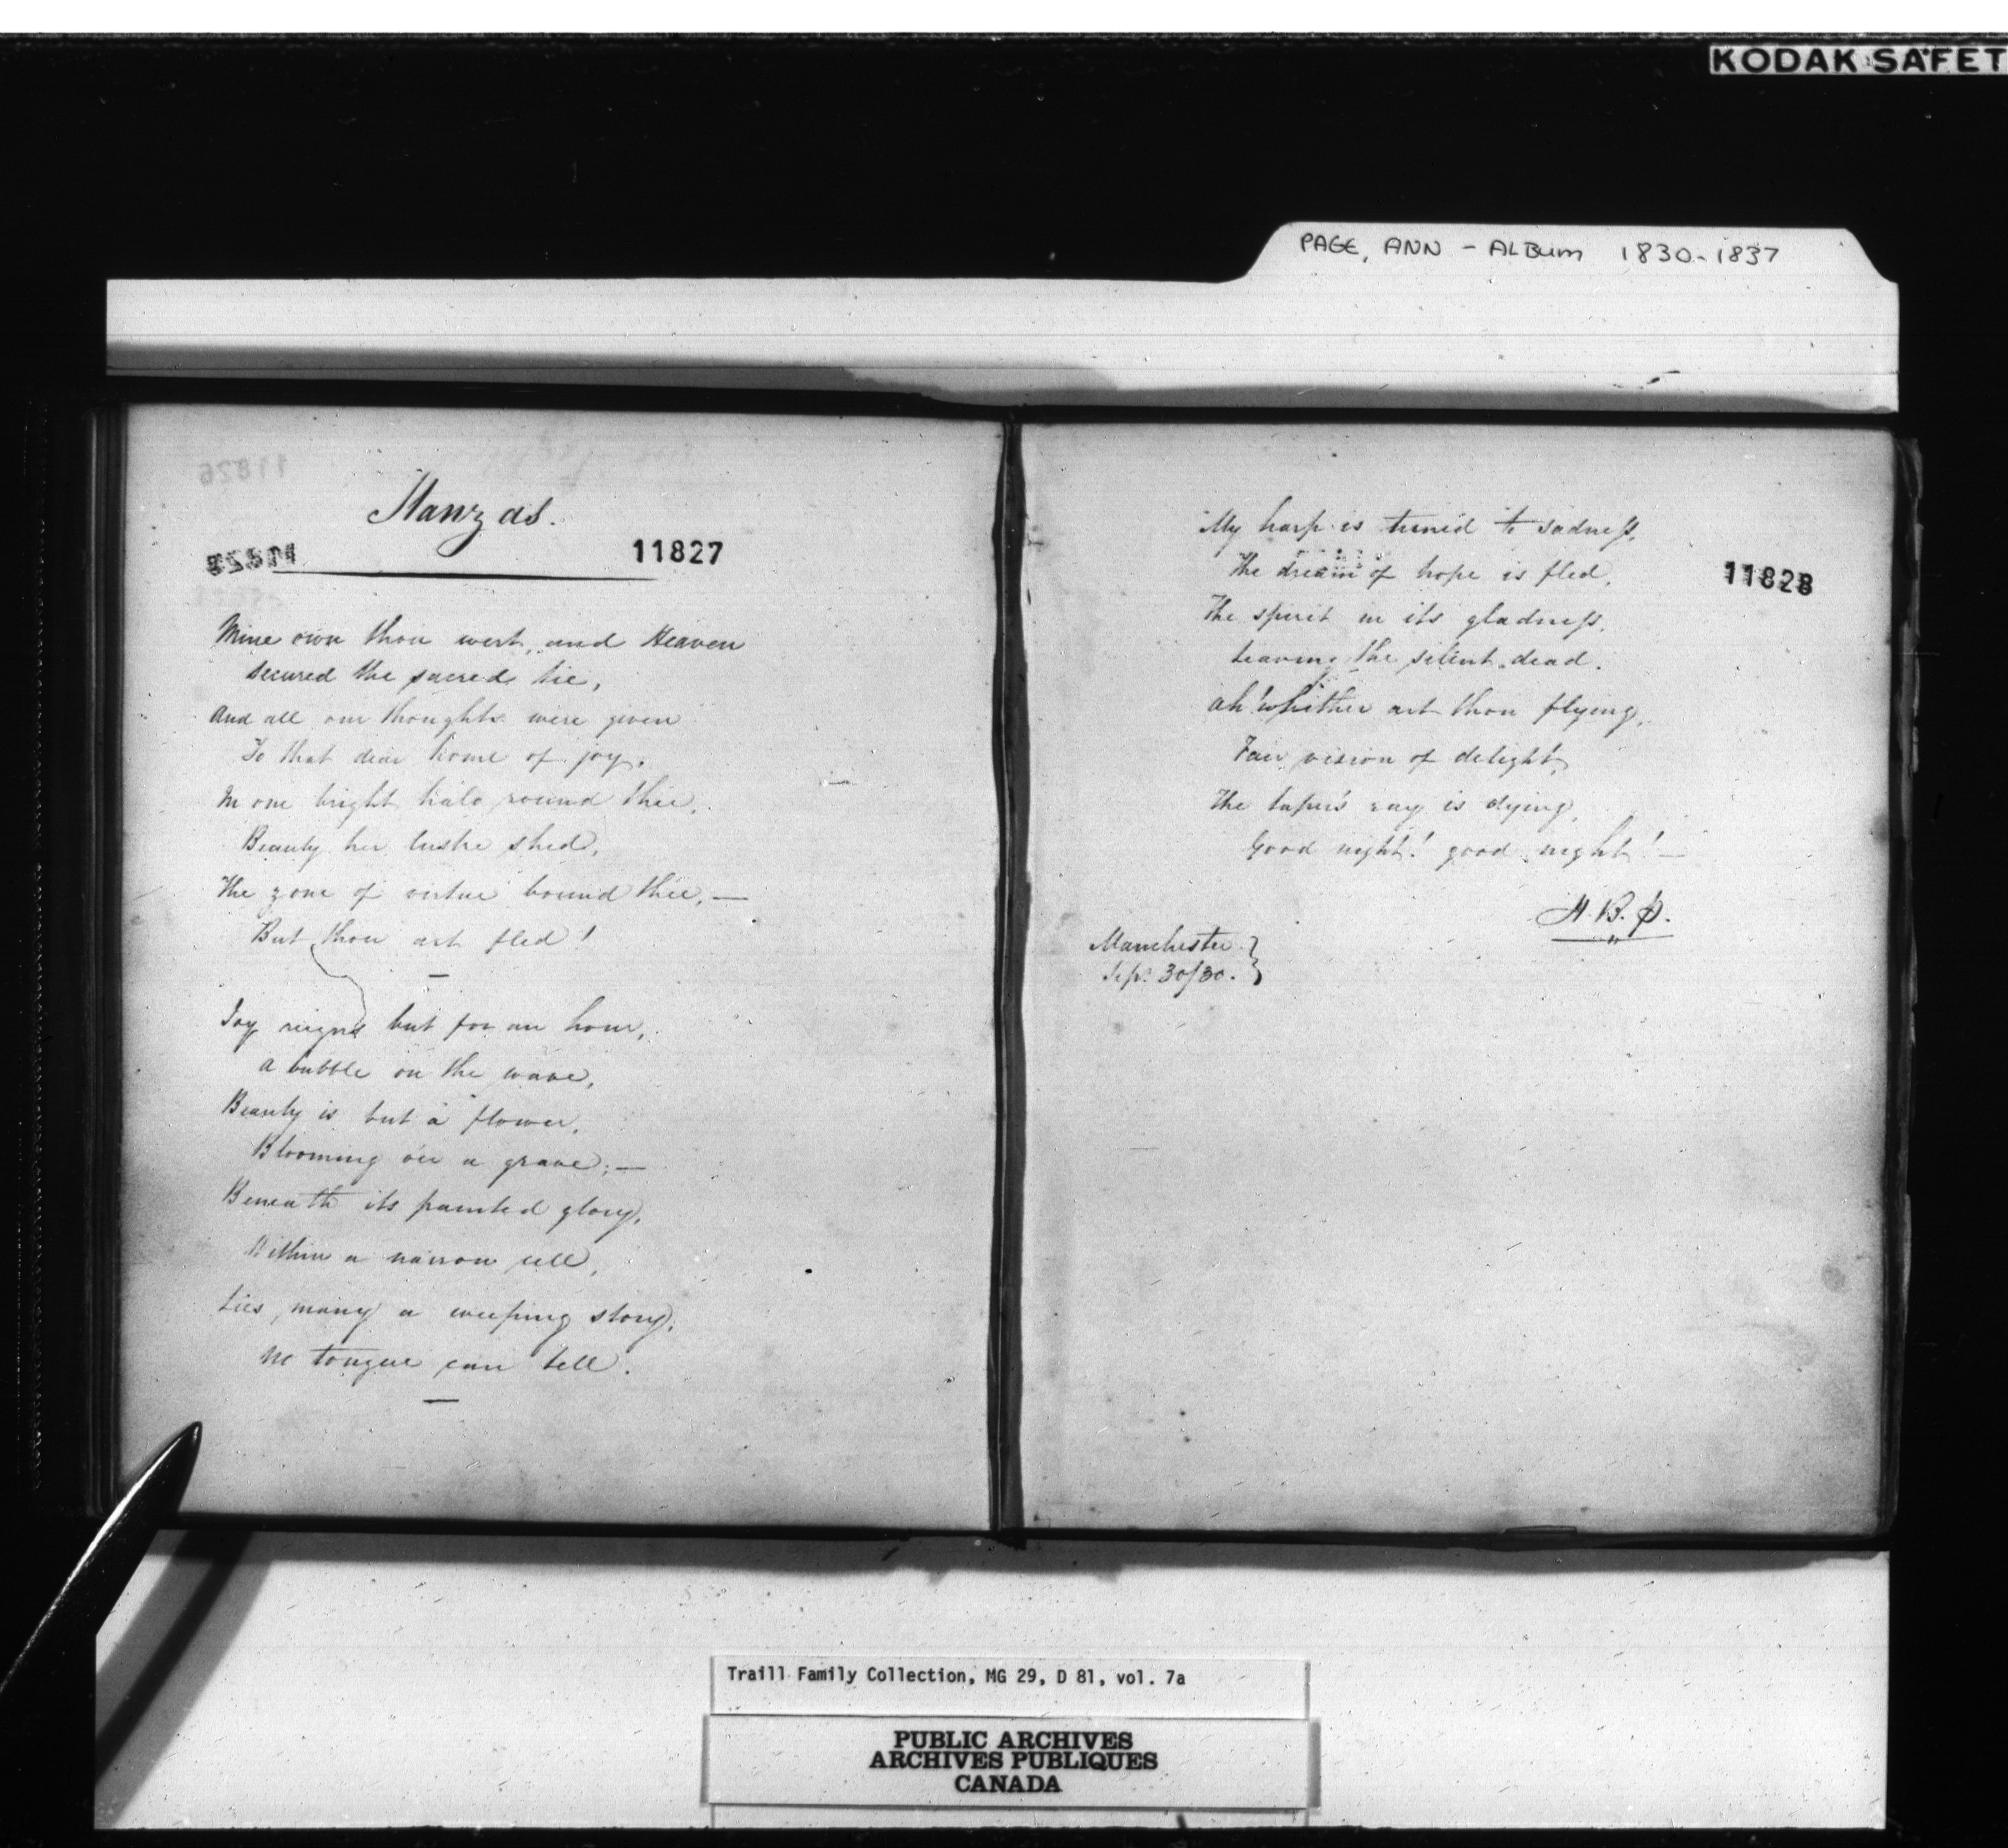 KODAK SAFET
PAGE, ANN - ALBUM 1830-1837
11826
Stanzas.
11828
11827
Mine own thou wert, and Heaven
Secured the sacred tie,
And all our thoughts were given
To that dear home of joy.
In one bright halo round thee,
Beauty her lustre shed,
The zone of virtue bound thee, —
But thou art fled!
—
Joy reigns but for an hour,
A bubble on the wave,
Beauty is but a flower,
Blooming o'er a grave; —
Beneath its painted glory,
Within a narrow cell,
Lies many a weeping story,
No tongue can tell.
—
My harp is tuned to sadness,
The dream of hope is fled,
11828
The spirit in its gladness,
Leaving the silent dead.
Ah! whither art thou flying,
Fair vision of delight,
The taper's ray is dying,
Good night! good night! —
H. B. P.
Manchester
Sep. 30/30.
Traill Family Collection, MG 29, D 81, vol. 7a
PUBLIC ARCHIVES
ARCHIVES PUBLIQUES
CANADA